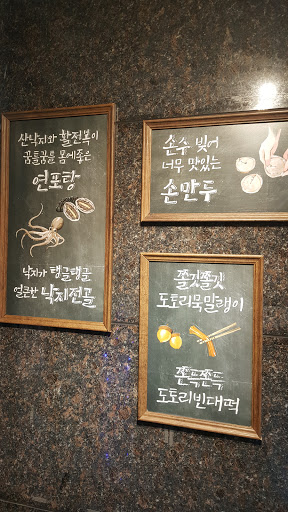 산낙지와 활전복이
꿈틀꿈틀 몸에좋은
연포탕
낙지가 탱글탱글
얼큰한 낙지전골
손수 빚어
너무 맛있는
손만두
쫄깃쫄깃
도토리묵말랭이
쫀득쫀득
도토리빈대떡